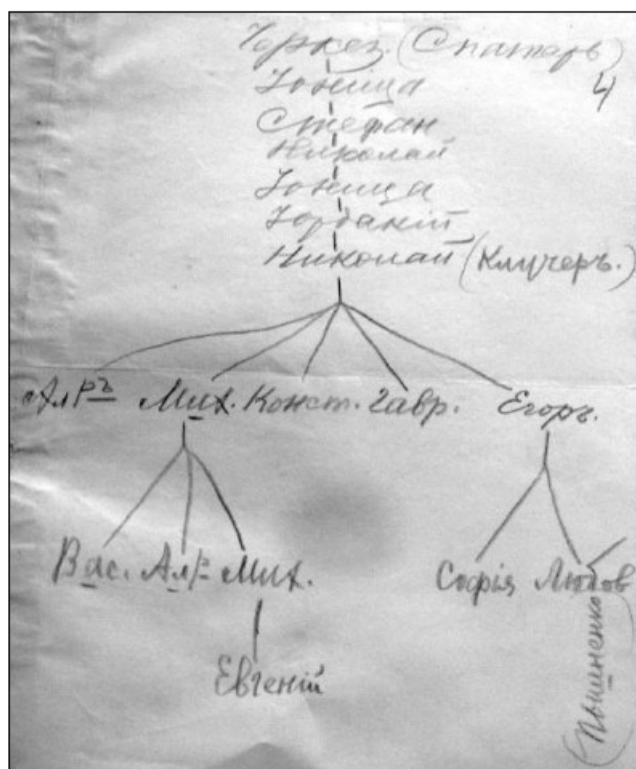 Черкез. (Спатарь)
4
Іоница
Стефан
Николай
Іоница
Іорданій
Николай (Ключеръ.)
Алръ Мих. Конст. Гавр. Егоръ.
Вас. Алръ Мих. Софія Любов
Евгеній